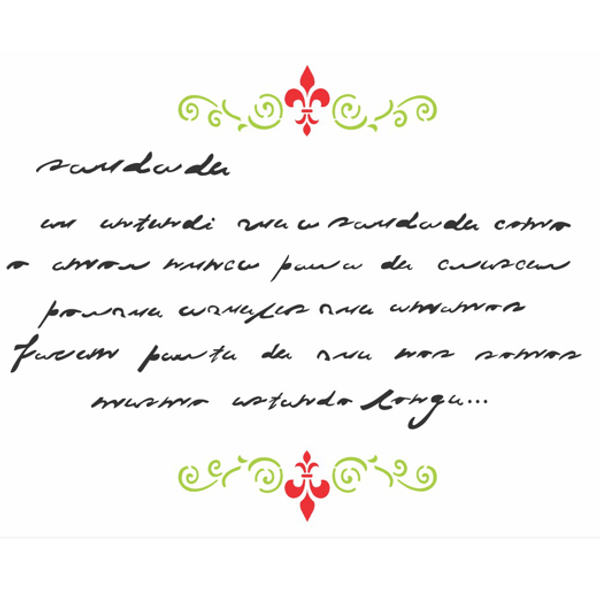 saudade
eu entendi que a saudade como
o amor nunca para de crescer
porque aqueles que amamos
fazem parte de que nos somos
mesmo estando longe...